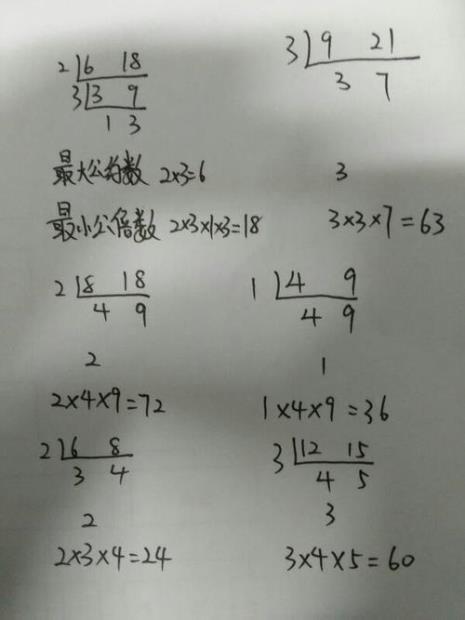 2 6 18
3 3 9
1 3
最大公约数 2×3=6
最小公倍数 2×3×1×3=18
3 9 21
3 7
3
3×3×7=63
2 8 18
4 9
2
2×4×9=72
1 4 9
4 9
1
1×4×9=36
2 6 8
3 4
2
2×3×4=24
3 12 15
4 5
3
3×4×5=60